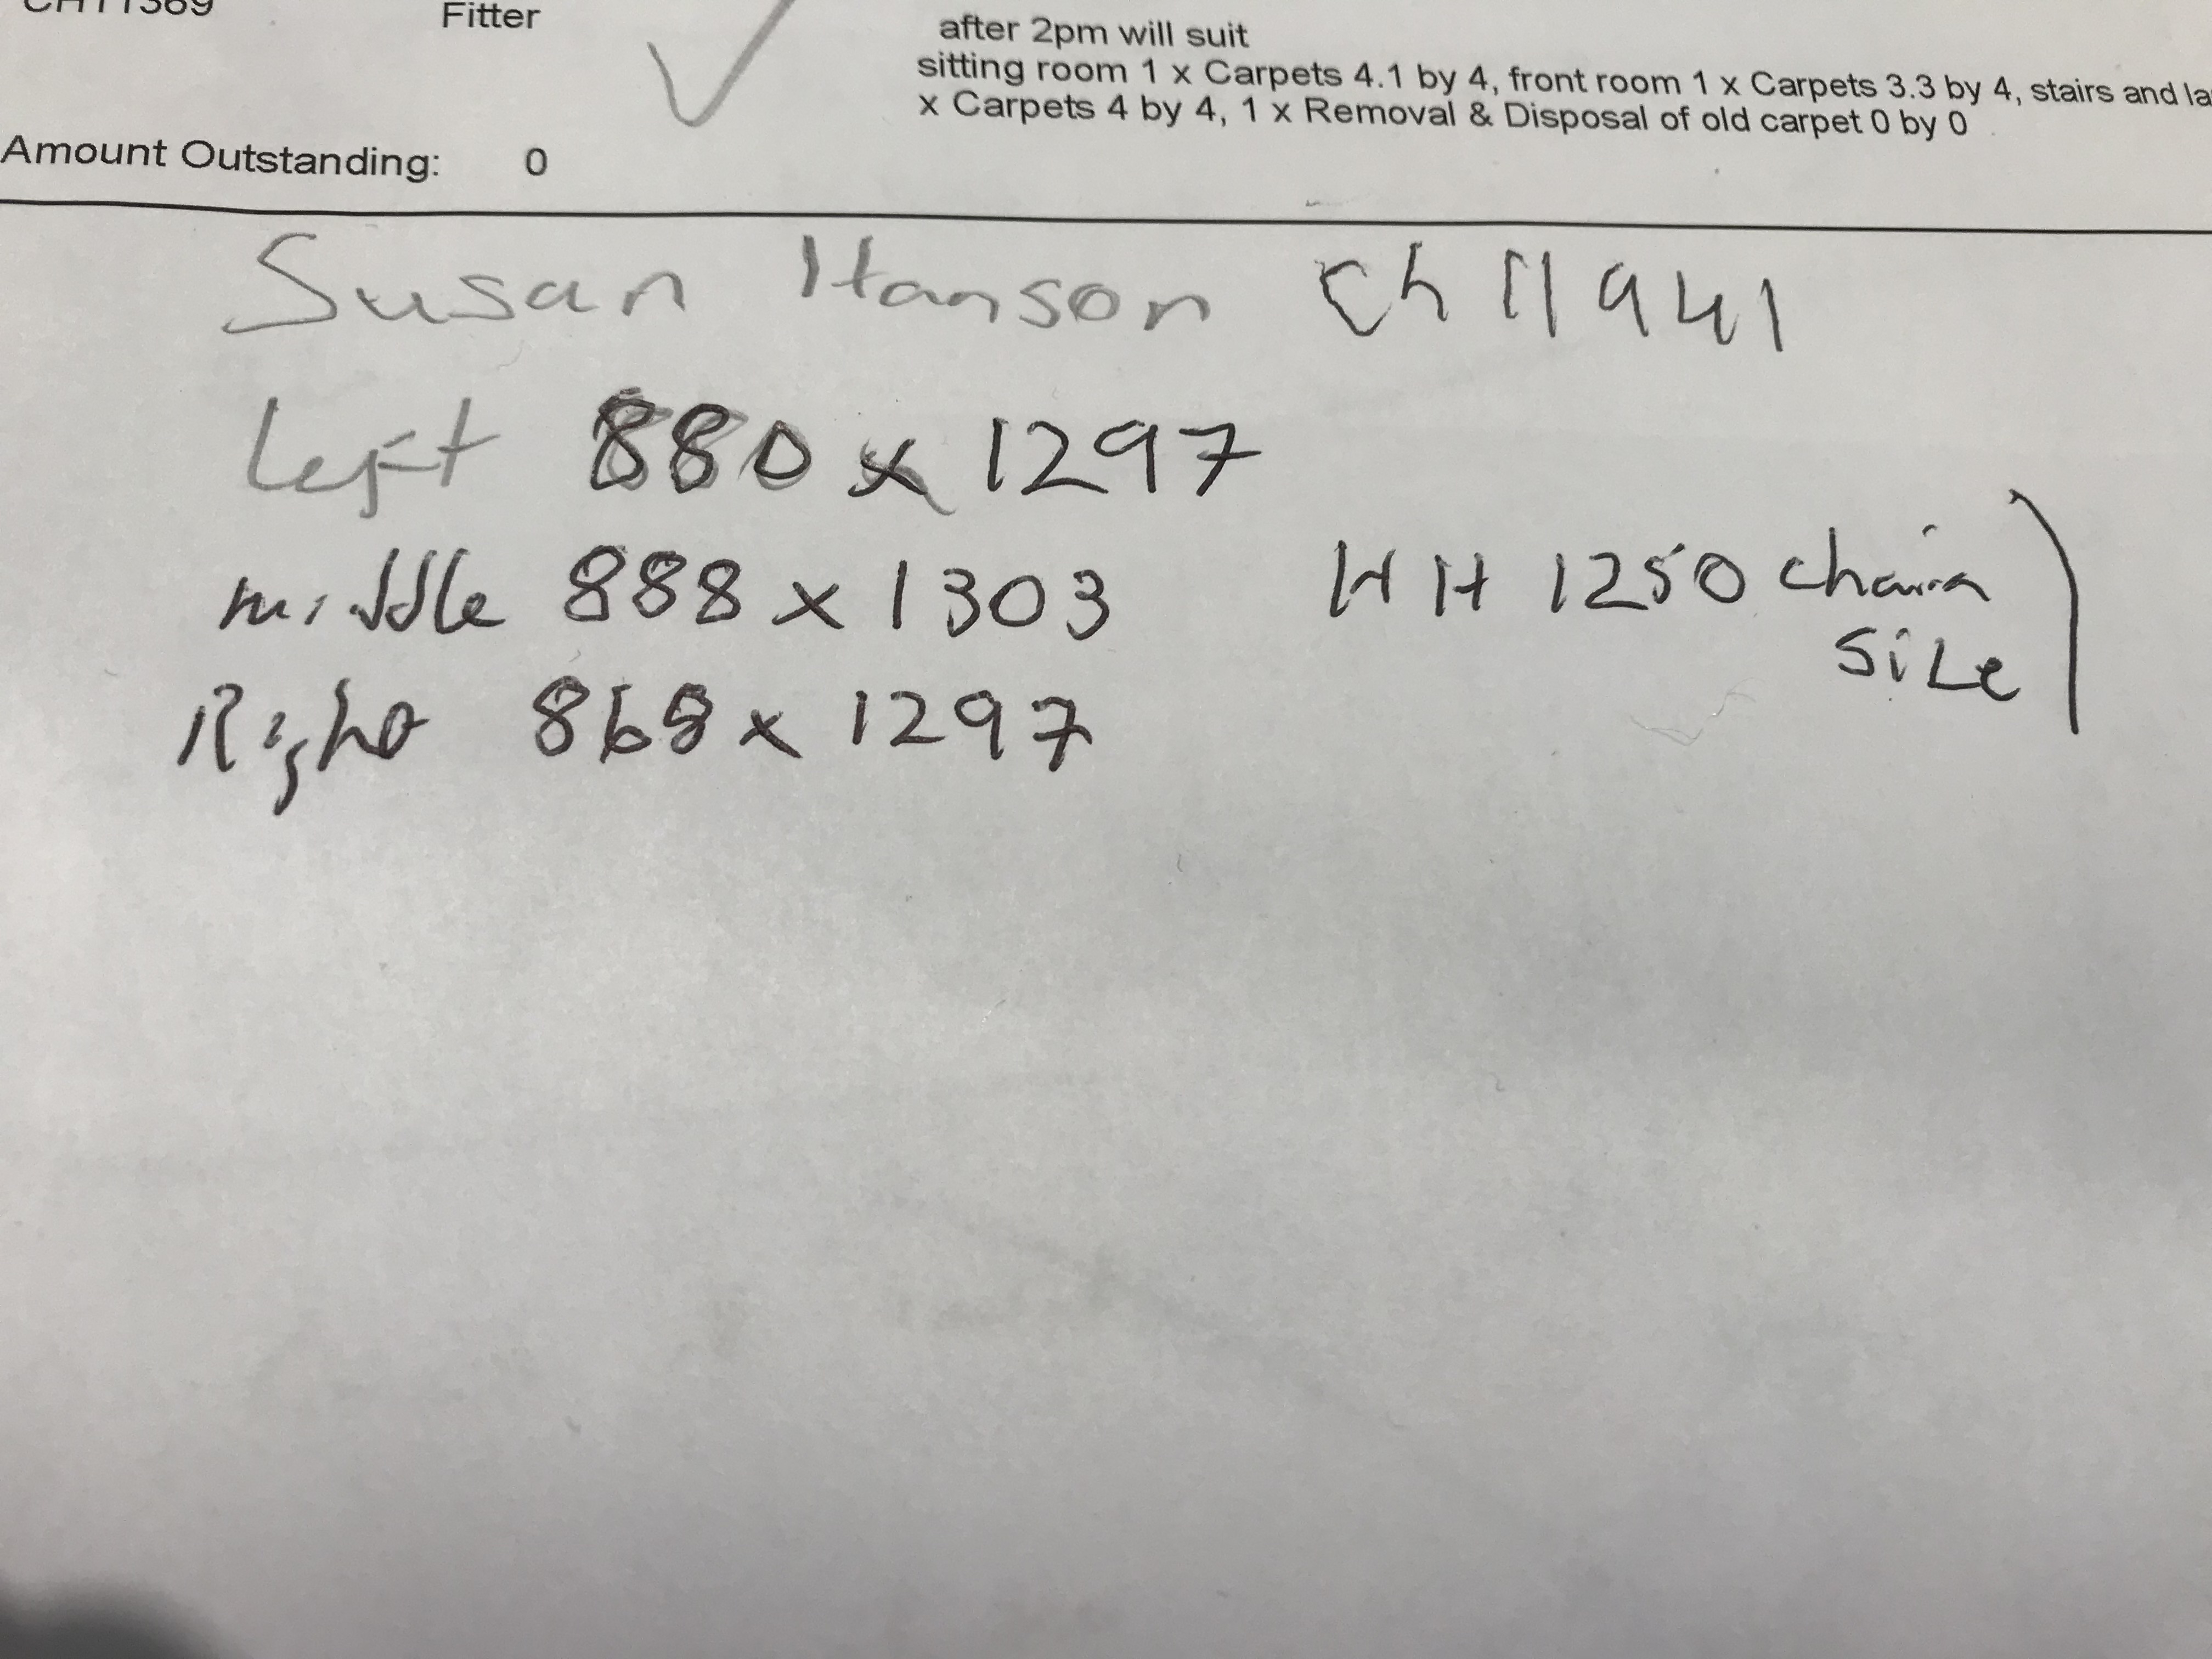 CH11369 Fitter
after 2pm will suit
sitting room 1 x Carpets 4.1 by 4, front room 1 x Carpets 3.3 by 4, stairs and la
x Carpets 4 by 4, 1 x Removal & Disposal of old carpet 0 by 0
Amount Outstanding: 0
Susan Hanson Ch 11941
Left 880 x 1297
middle 888 x 1303
HH 1250 chain
size
Right 868 x 1297